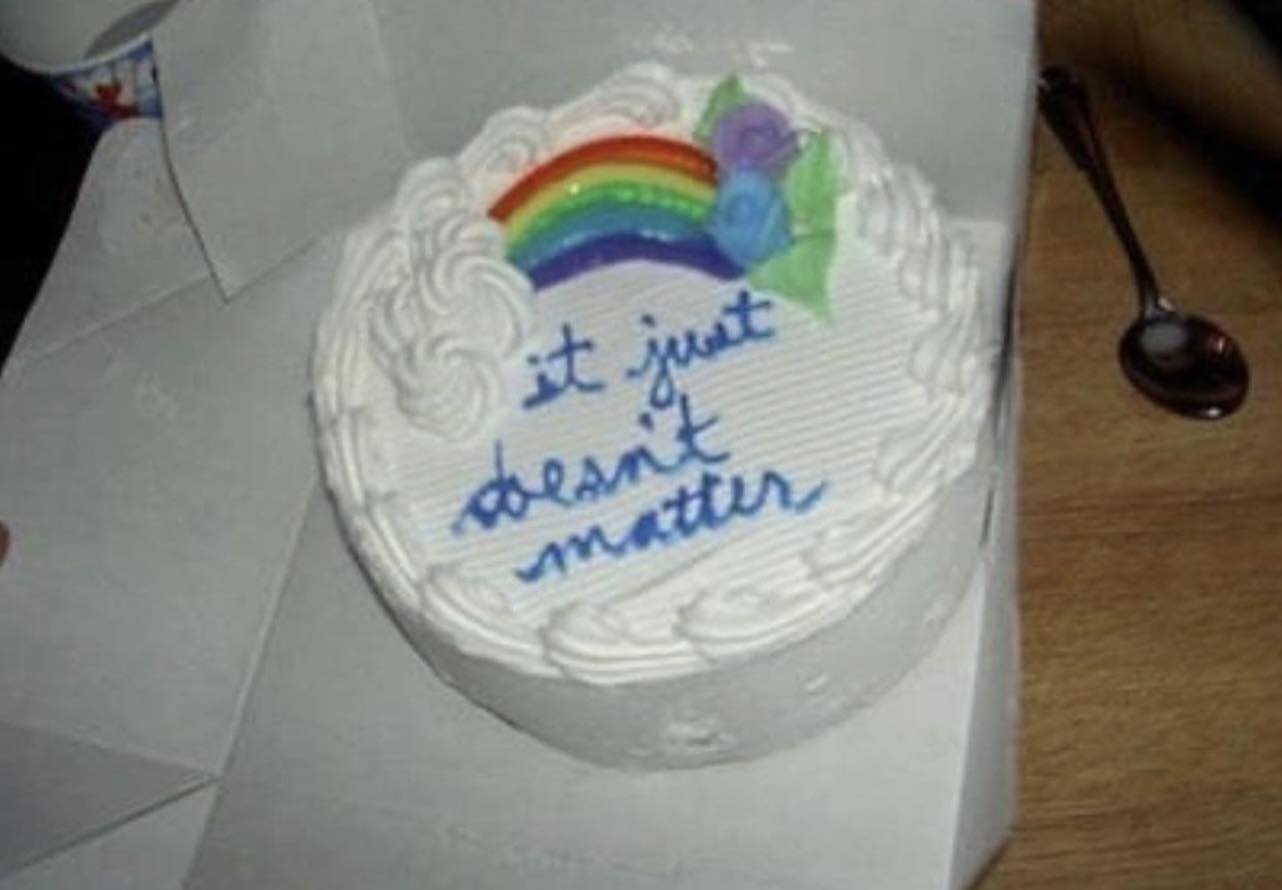 it just
doesn't
matter